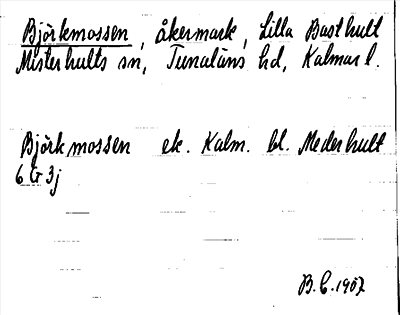 Björkmossen, åkermark, Lilla Basthult
Misterhults sn, Tunaläns hd, Kalmar l.
Björkmossen ek. Kalm. bl. Mederhult
6 G 3j
B.C. 1957